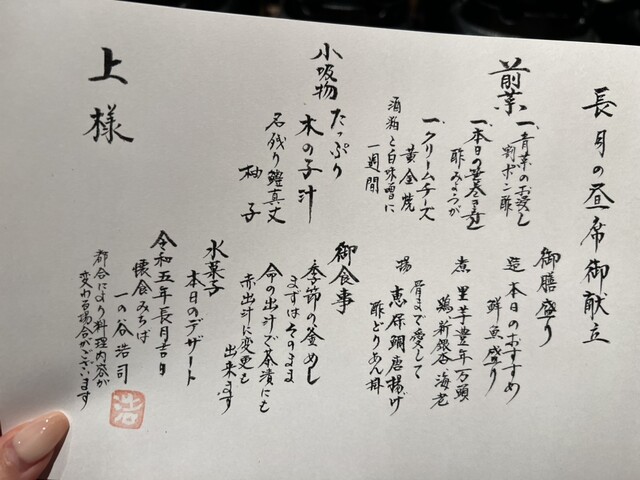 長月の昼席御献立
前菜
一、青菜のお浸し
割ポン酢
一、本日の
酢みょうが
一、クリームチーズ
黄金焼
酒粕と白味噌に
一週間
小吸物
たっぷり
木の子汁
名残り鱧真丈
柚子
上様
御膳盛り
造 本日のおすすめ
鮮魚盛り
煮 里芋豊年万頭
鶏 新銀杏 海老
揚 骨まで愛して
恵保鯛唐揚げ
酢どりあん掛
御食事
季節の釜めし
まずはそのまま
命の出汁で茶漬にも
赤出汁に変更も
出来ます
水菓子
本日のデザート
令和五年長月吉日
懐食みちば
一の谷浩司
浩
都合により料理内容が
変わる場合がございます